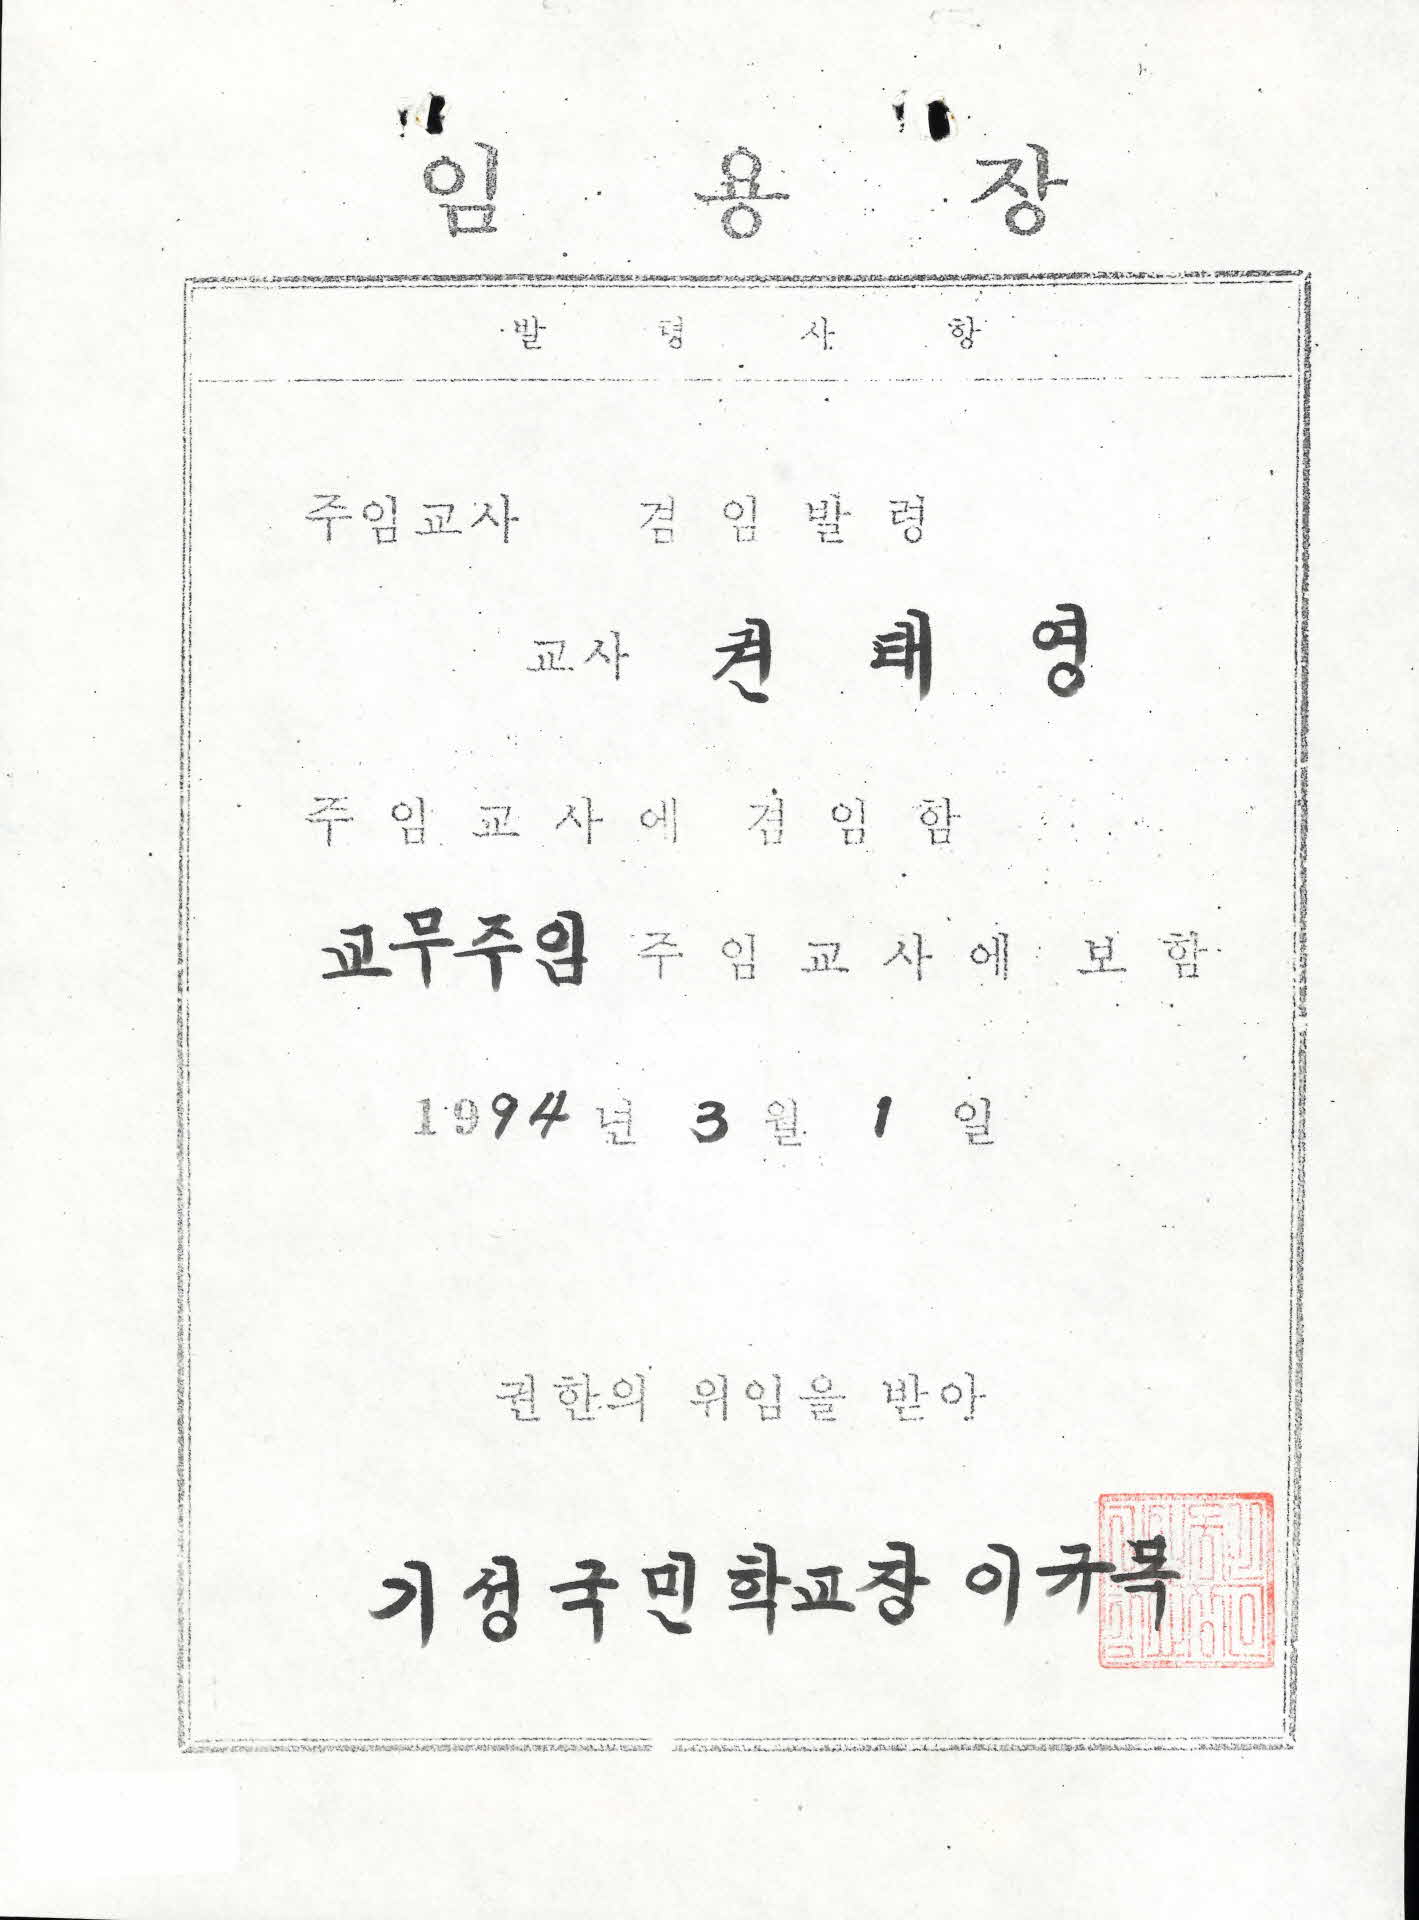 임 용 장
발 령 사 항
주임교사 겸 임 발 령
교사 권 태 영
주 임 교 사 에 겸 임 함
교무주임 주 임 교 사 에 보 함
1994 년 3 월 1 일
권한의 위임을 받아
기성국민학교장 이규목